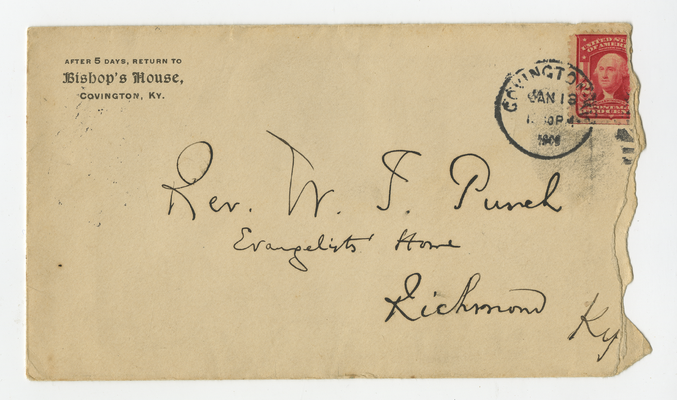 AFTER 5 DAYS, RETURN TO
Bishop's House,
COVINGTON, KY.
UNITED STATES
OF AMERICA
COVINGTON
JAN 13
1906
POSTAGE
Rev. W. T. Punch
Evangelists' Home
Richmond
Ky